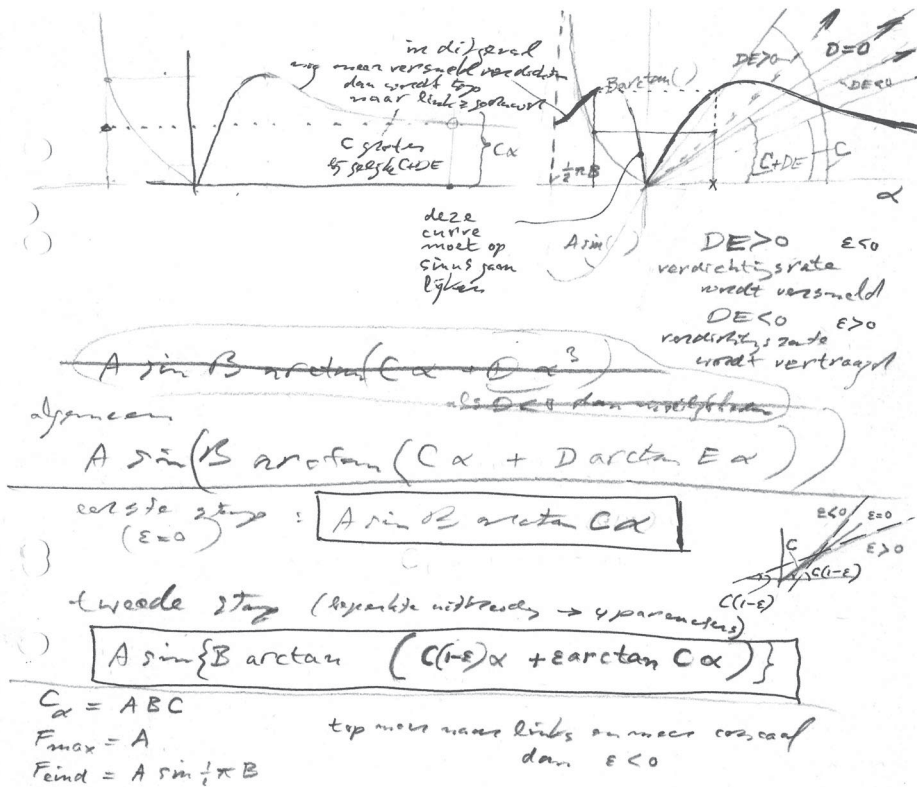 in dit geval
nog meer versneld verdichten
dan wordt top
naar links
C groter
bij gelijke C+DE
Cα
Barctan()
½πB
DE>0
D=0
DE<0
C+DE
C
x
α
deze
curve
moet op
sinus gaan
lijken
A sin()
DE>0 ε<0
verdichtingsrate
wordt versneld
DE<0 ε>0
verdichtingsrate
wordt vertraagd
A sin B arctan(Cα + Dα³)
als D<0 dan
algemeen
A sin(B arctan(Cα + D arctan Eα))
eerste stap :
(ε=0)
A sin B arctan Cα
ε<0
ε=0
ε>0
C
C(1-ε)
C(1-ε)
tweede stap (beperkte uitbreiding → 4 parameters)
A sin{B arctan (C(1-ε)α + εarctan Cα)}
Cα = ABC
Fmax = A
Feind = A sin ½πB
top meer naar links en meer
dan ε<0